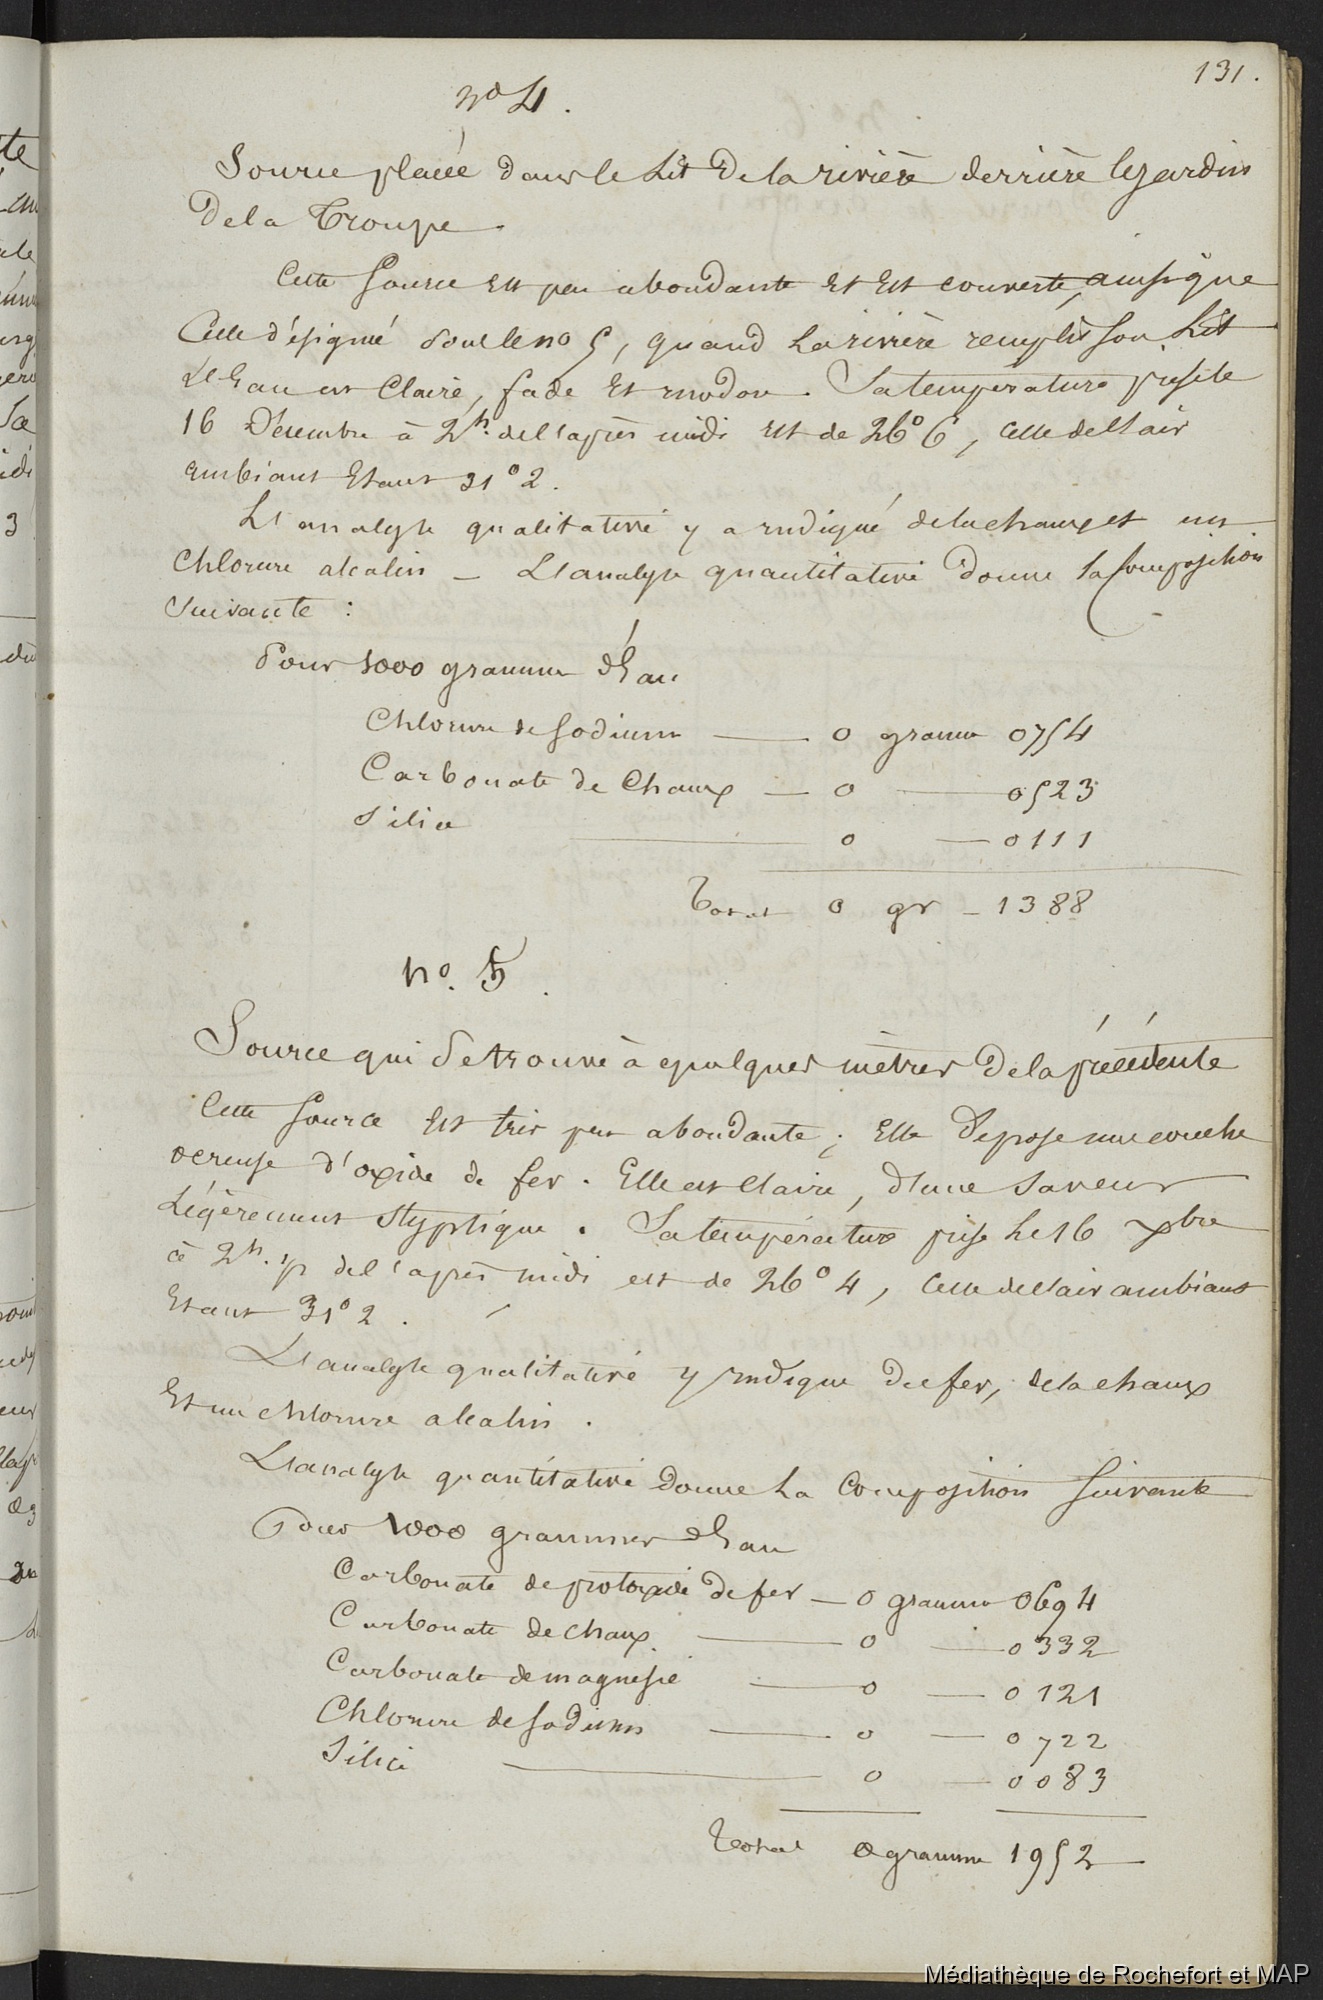 131.
no 4.
Source placée dans le lit de la rivière derrière les jardins
de la Troupe.
Cette source est peu abondante et est couverte, ainsi que
Celle désigné sous le no 5, quand la rivière remplit son lit
L'Eau est Claire, fade et inodore. Sa température prise le
16 Décembre à 2h. de l'après midi est de 26° 6, celle de l'air
ambiant étant 31° 2.
L'analyse qualitative y a indiqué de la chaux et un
Chlorure alcalin — L'analyse quantitative donne la Composition
Suivante :
Pour 1000 gramme d'Eau
Chlorure de Sodium — 0 gramme 0754
Carbonate de Chaux — 0 — 0523
Silice — 0 — 0111
Total 0 gr — 1388
no. 5.
Source qui se trouve à quelques mètres de la précédente
Cette Source est très peu abondante ; Elle dépose une couche
ocreuse d'oxide de fer. Elle est claire, d'une saveur
Légèrement Styptique. Sa température prise le 16 xbre
à 2h. 1/2 de l'après midi est de 26° 4, celle de l'air ambiant
étant 31° 2.
L'analyse qualitative y indique du fer, de la chaux
Et un chlorure alcalin.
L'analyse quantitative donne la Composition Suivante
Pour 1000 grammes d'Eau
Carbonate de protoxide de fer — 0 gramme 0694
Carbonate de chaux — 0 — 0332
Carbonate de magnésie — 0 — 0121
Chlorure de Sodium — 0 — 0722
Silice — 0 — 0083
Total 0 gramme 1952
Médiathèque de Rochefort et MAP